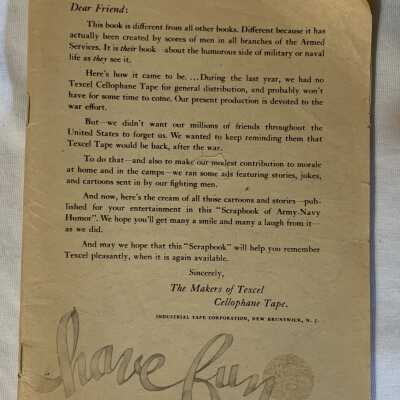 Dear Friend:
This book is different from all other books. Different because it has
actually been created by scores of men in all branches of the Armed
Services. It is their book—about the humorous side of military or naval
life as they see it.
Here's how it came to be. ...During the last year, we had no
Texcel Cellophane Tape for general distribution, and probably won't
have for some time to come. Our present production is devoted to the
war effort.
But—we didn't want our millions of friends throughout the
United States to forget us. We wanted to keep reminding them that
Texcel Tape would be back, after the war.
To do that—and also to make our modest contribution to morale
at home and in the camps—we ran some ads featuring stories, jokes,
and cartoons sent in by our fighting men.
And now, here's the cream of all those cartoons and stories—pub-
lished for your entertainment in this "Scrapbook of Army-Navy
Humor". We hope you'll get many a smile and many a laugh from it—
as we did.
And may we hope that this "Scrapbook" will help you remember
Texcel pleasantly, when it is again available.
Sincerely,
The Makers of Texcel
Cellophane Tape.
INDUSTRIAL TAPE CORPORATION, NEW BRUNSWICK, N. J.
have fun